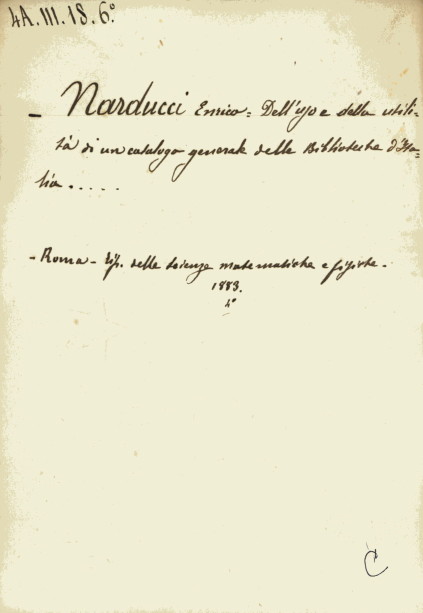 4A.III.18.6°
- Narducci Enrico = Dell'uso e della utili-
tà di un catalogo generale delle Biblioteche d'Ita-
lia . . . . .
- Roma - Tip. delle scienze matematiche e fisiche -
1883.
4°
C